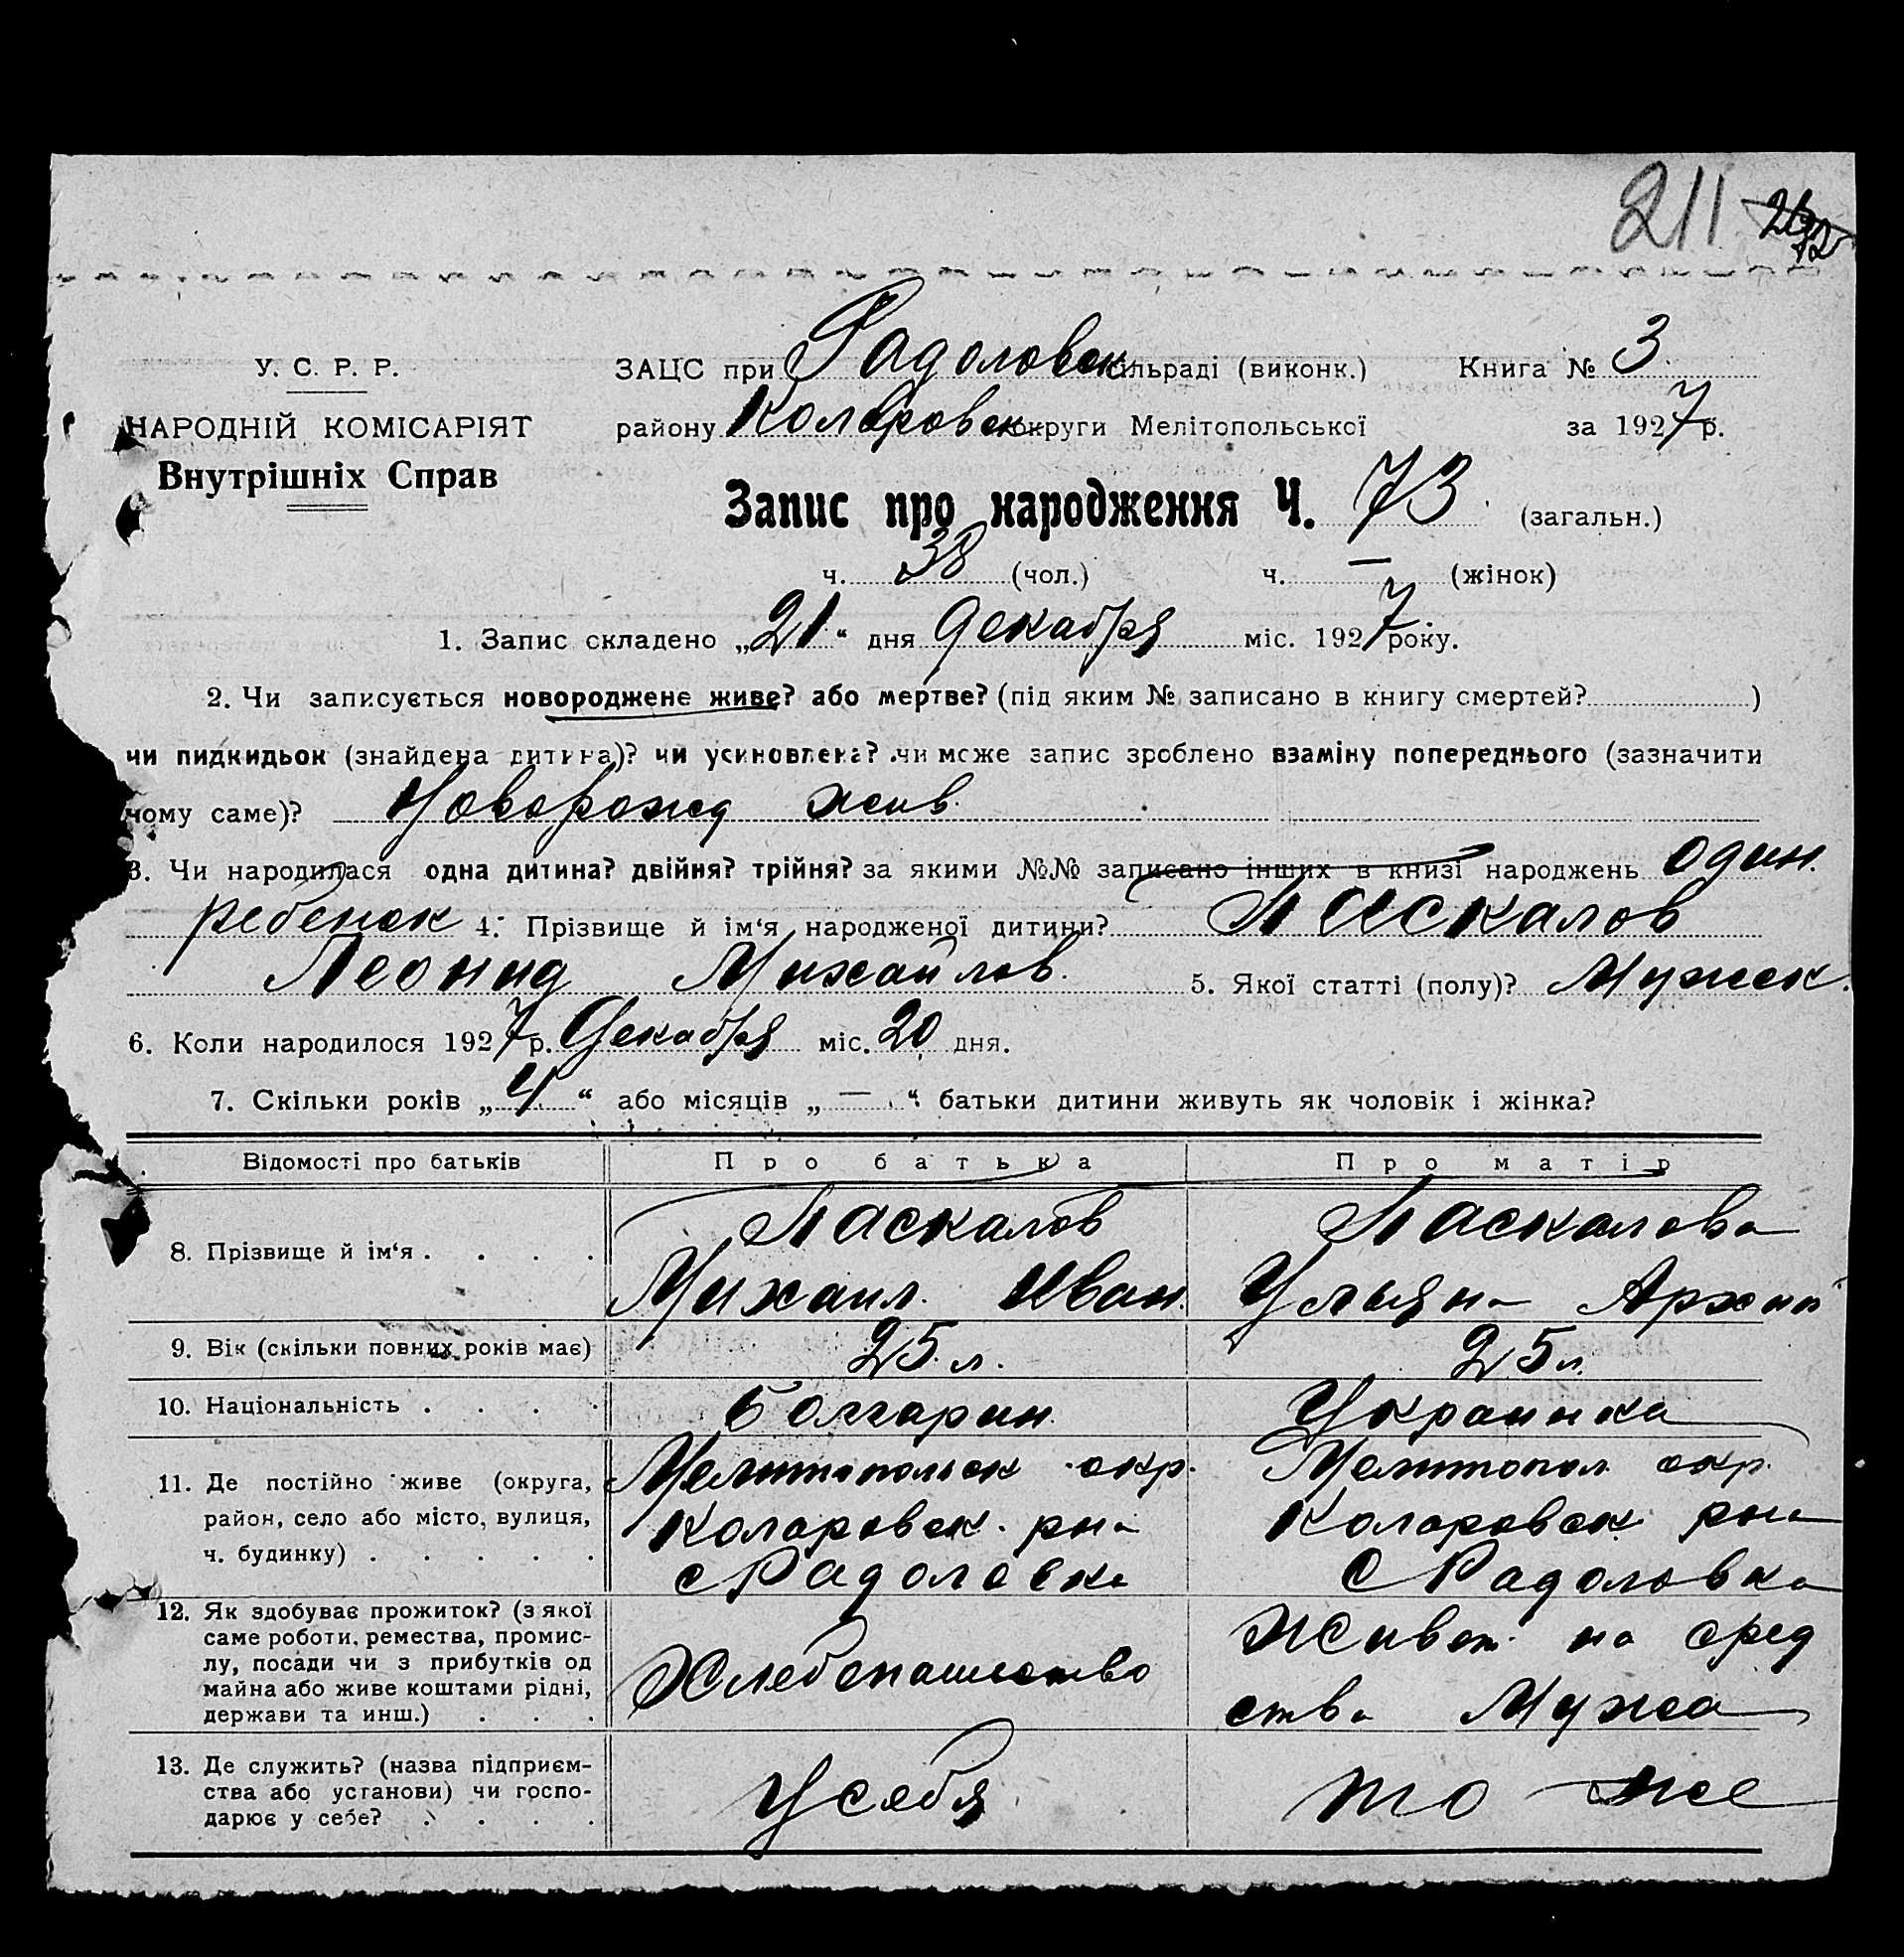 211
У. С. Р. Р.
ЗАЦС при Радоловск сільраді (виконк.) Книга № 3
НАРОДНІЙ КОМІСАРІЯТ
району Коларовск округи Мелітопольської за 1927 р.
Внутрішніх Справ
Запис про народження Ч. 73 (загальн.)
ч. 38 (чол.) ч. — (жінок)
1. Запис складено „21“ дня Декабря міс. 1927 року.
2. Чи записується новороджене живе? або мертве? (під яким № записано в книгу смертей? )
чи пидкидьок (знайдена дитина)? чи усиновлена? чи може запис зроблено взаміну попереднього (зазначити
чому саме)?Новорожд жив.
3. Чи народилася одна дитина? двійня? трійня? за якими №№ записано інших в книзі народжень один.
ребенок 4. Прізвище й ім‘я народженої дитини? Паскалов
Леонид Михайлов. 5. Якої статті (полу)? Мужск.
6. Коли народилося 1927 р. Декабря міс. 20 дня.
7. Скільки років „4“ або місяців „—“ батьки дитини живуть як чоловік і жінка?
Відомості про батьків Про батька Про матір
8. Прізвище й ім‘я . . . . Паскалов Паскалова
Михаил. Иван. Ульяна Архип
9. Вік (скільки повних років має) 25 л. 25 л.
10. Національність . . . . Болгарин. Украинка
11. Де постійно живе (округа, Мелитопольск окр. Мелитопол окр.
район, село або місто, вулиця, Коларовск. рна Коларовск рна
ч. будинку) . . . . . с Радоловка с Радоловка
12. Як здобуває прожиток? (з якої
саме роботи, ремества, промис- Живет на сред
лу, посади чи з прибутків од Хлебопашество
майна або живе коштами рідні,
держави та инш.) . . . ства Мужа
13. Де служить? (назва підприєм-
ства або установи) чи госпо- У себя то же
дарює у себе? . . . .